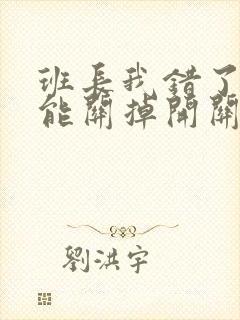 班長我錯了
能關掉開關
劉洪宇